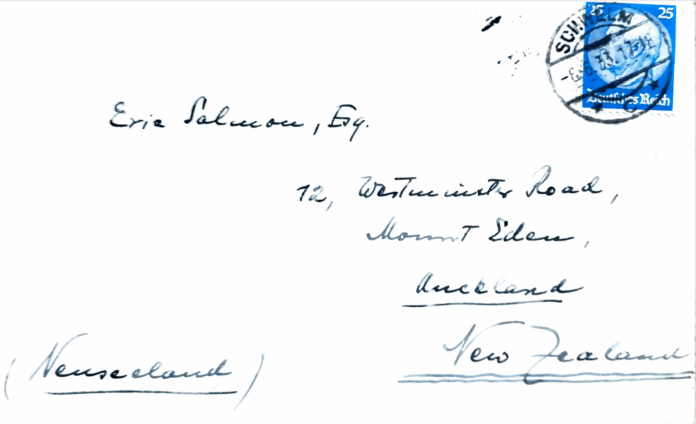 25 25
SCHWELM
Deutsches Reich
Eric Salmon, Esq.
12, Westminster Road,
Mount Eden,
Auckland
New Zealand
(Neuseeland)